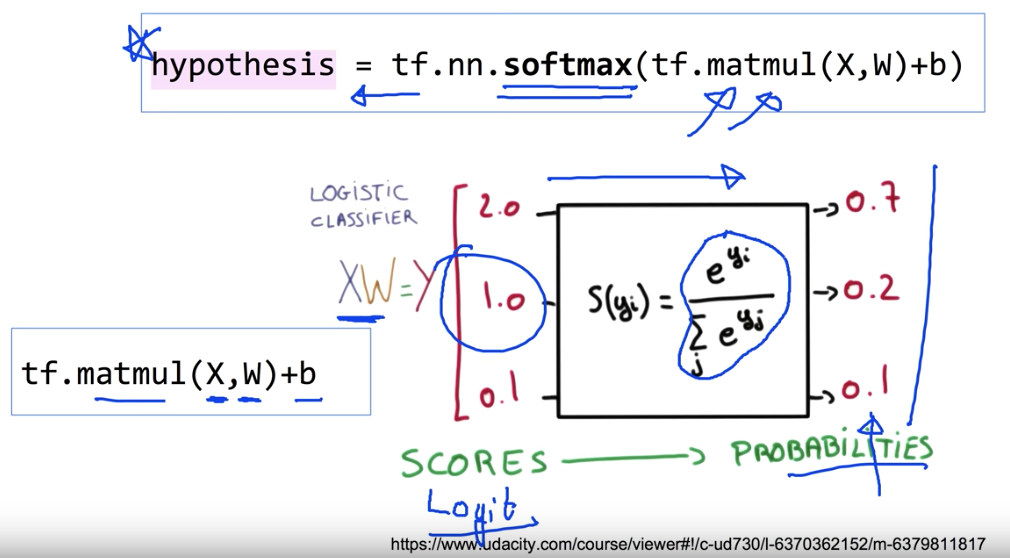 hypothesis = tf.nn.softmax(tf.matmul(X,W)+b)
LOGISTIC
CLASSIFIER
XW=Y
2.0
1.0
0.1
S(yi) = e^yi / Σj e^yj
0.7
0.2
0.1
tf.matmul(X,W)+b
SCORES → PROBABILITIES
Logit
https://www.udacity.com/course/viewer#!/c-ud730/l-6370362152/m-6379811817